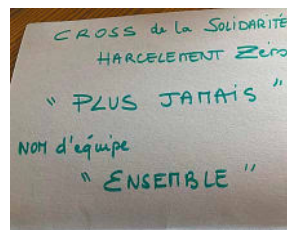 CROSS de la SOLIDARITÉ
HARCELEMENT Zéro
" PLUS JAMAIS "
NOM d'équipe
" ENSEMBLE "